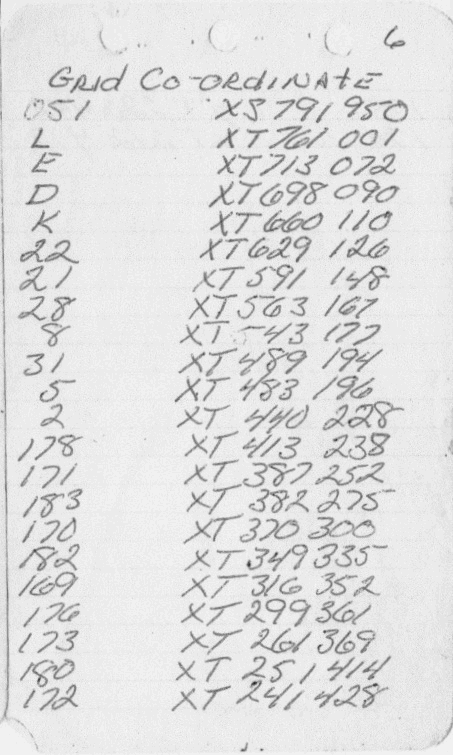 6
GRID CO-ORDINATE
051 XS 791 950
L XT 761 001
E XT 713 072
D XT 698 090
K XT 660 110
22 XT 629 126
21 XT 591 148
28 XT 563 167
8 XT 543 177
31 XT 489 194
5 XT 483 196
2 XT 440 228
178 XT 413 238
171 XT 387 252
183 XT 382 275
170 XT 370 300
182 XT 349 335
169 XT 316 352
176 XT 299 361
173 XT 261 369
180 XT 251 414
172 XT 241 428